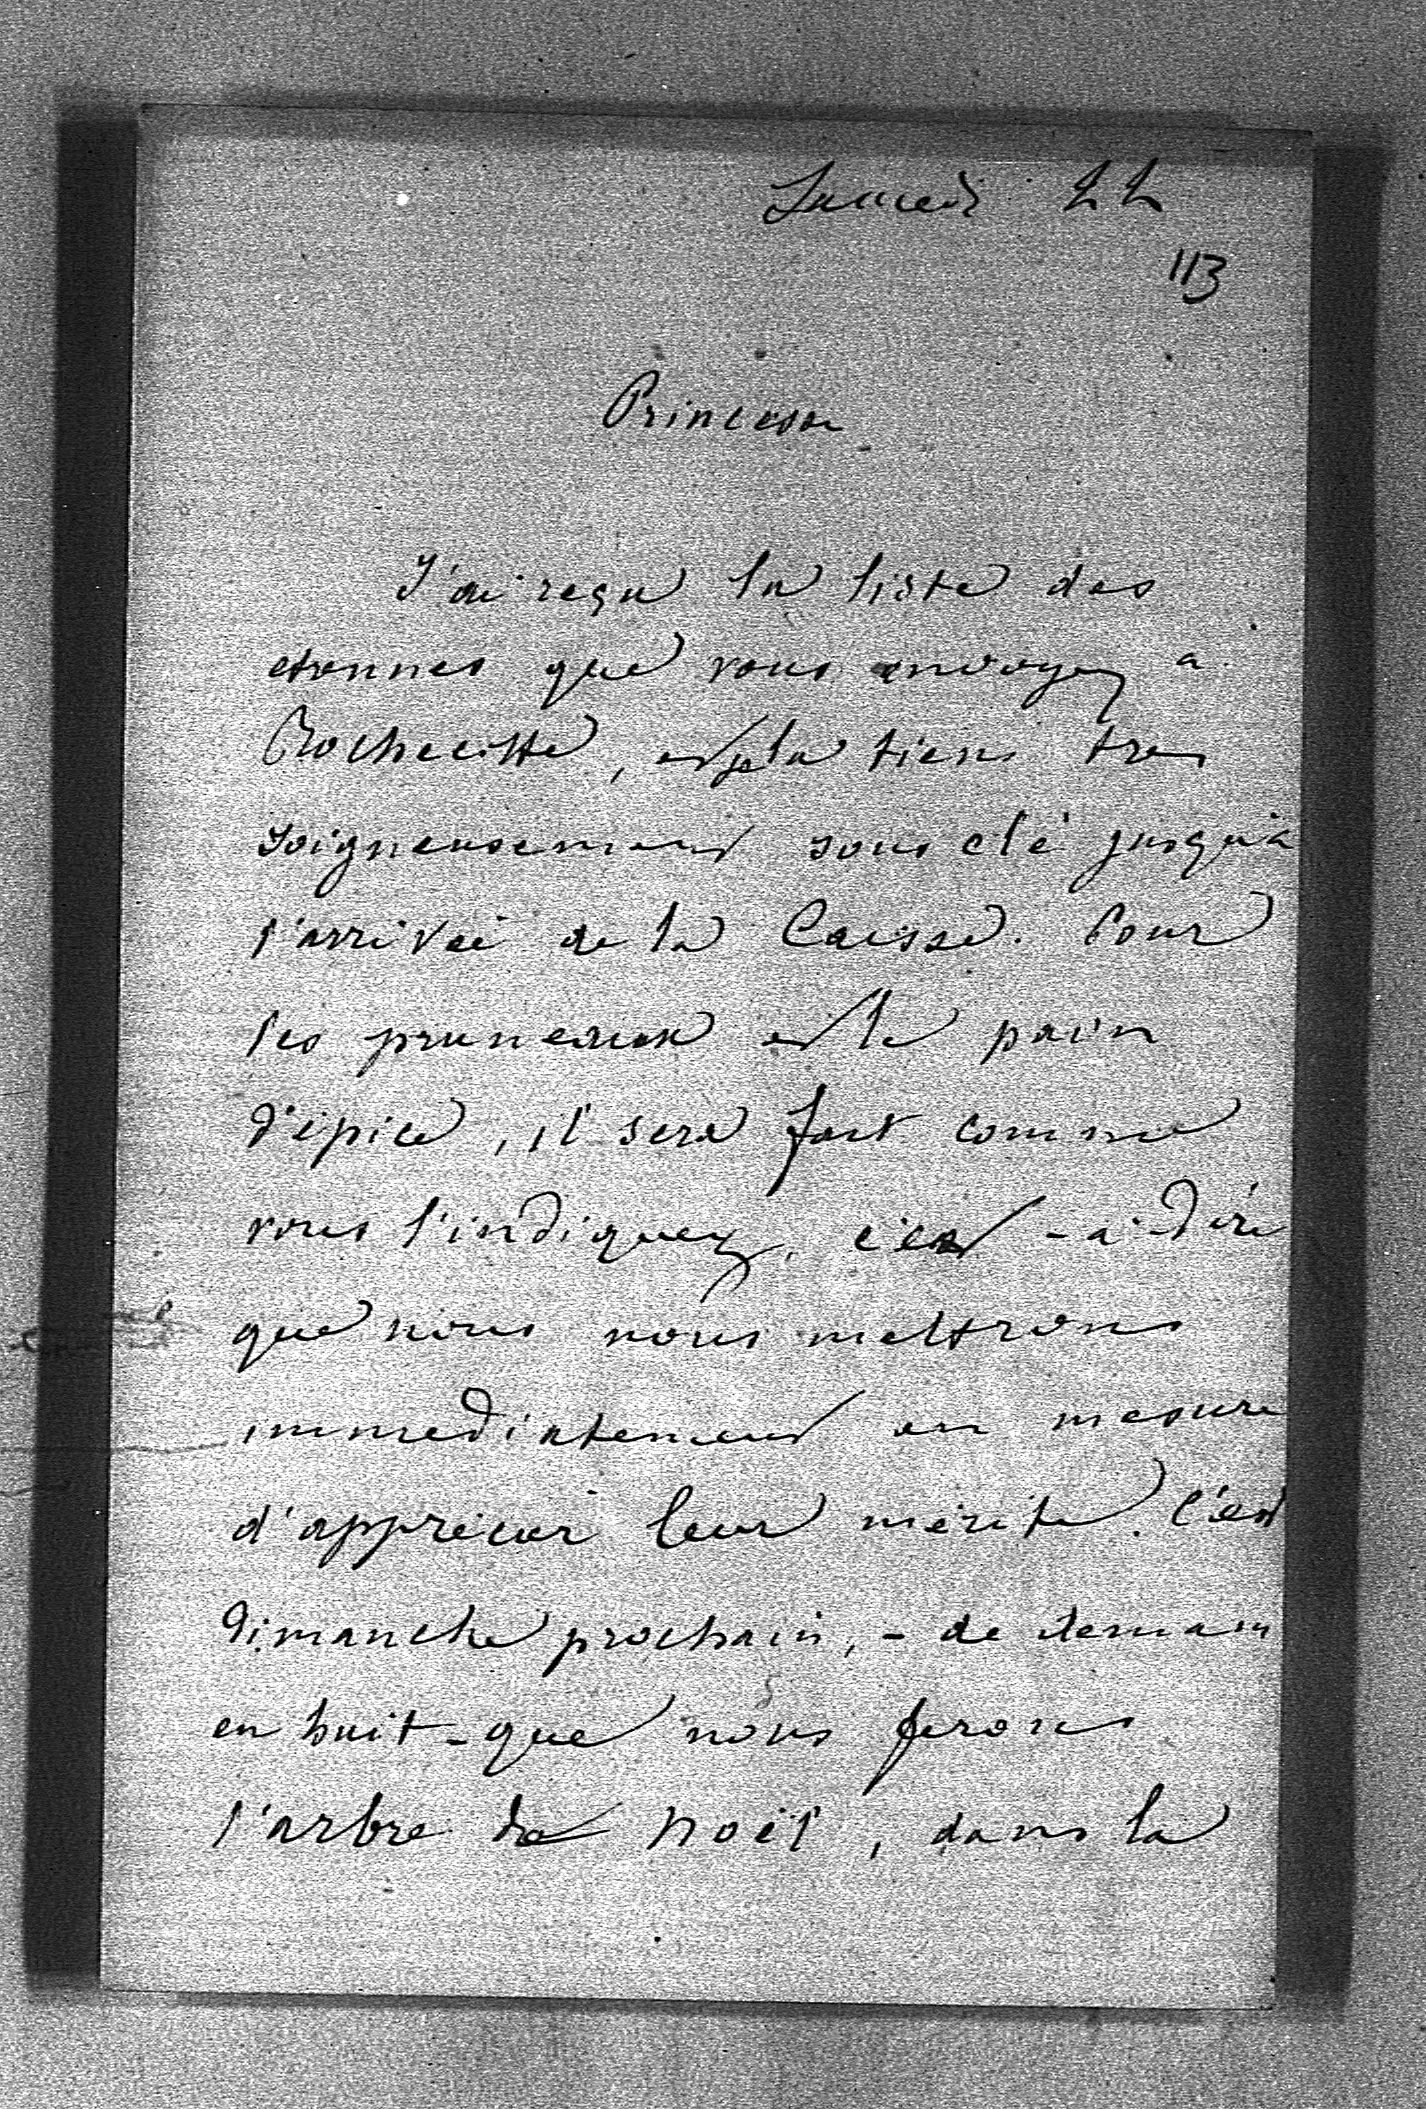 Samedi 22
113
Princesse
J'ai reçu la liste des
etrennes que vous envoyez a
Rochecotte, et la tiens tres
soigneusement sous clé jusqu'à
l'arrivée de la Caisse. Pour
les pruneaux et le pain
d'épice, il sera fait comme
vous l'indiquez, c'est-a-dire
que nous nous mettrons
immediatement en mesure
d'apprécier leur mérite. C'est
Dimanche prochain, - de demain
en huit - que nous ferons
l'arbre de Noël, dans la